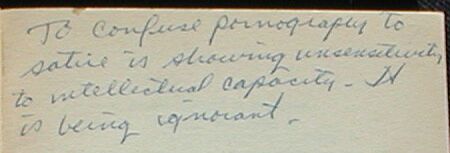 To confuse pornography to
satire is showing unsensitivity
to intellectual capacity - It
is being ignorant.